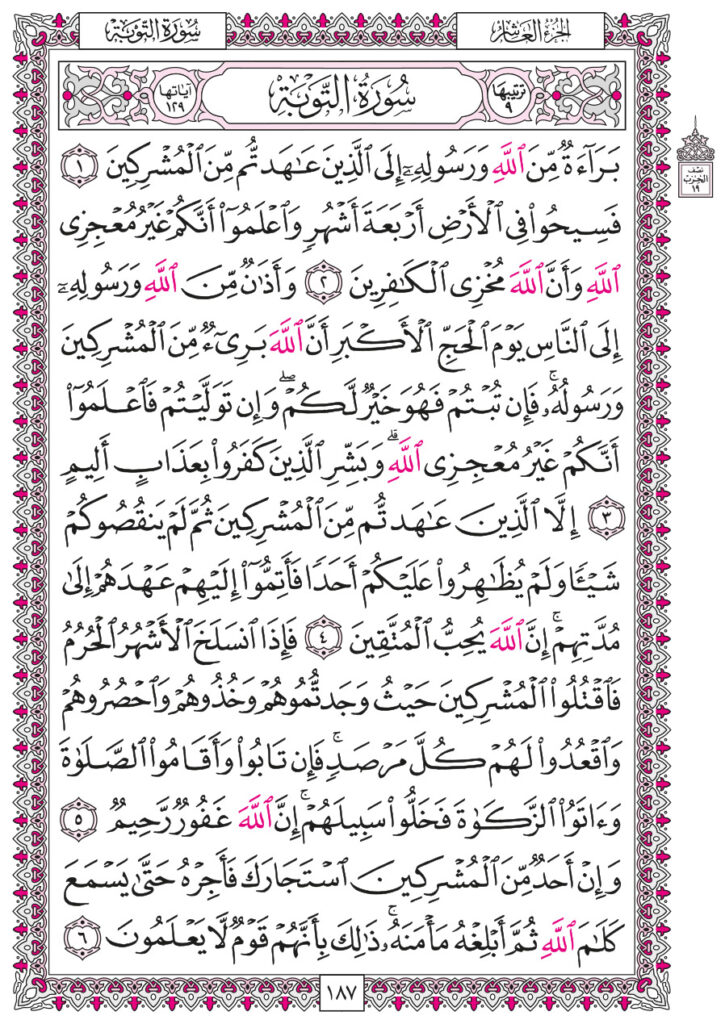 الجزء العاشر
سورة التوبة
ترتيبها ٩
سُورَةُ التَّوْبَةِ
آياتها ١٢٩
نصف الحزب ١٩
بَرَآءَةٌ مِّنَ ٱللَّهِ وَرَسُولِهِۦٓ إِلَى ٱلَّذِينَ عَٰهَدتُّم مِّنَ ٱلْمُشْرِكِينَ ١
فَسِيحُوا۟ فِى ٱلْأَرْضِ أَرْبَعَةَ أَشْهُرٍ وَٱعْلَمُوٓا۟ أَنَّكُمْ غَيْرُ مُعْجِزِى
ٱللَّهِ وَأَنَّ ٱللَّهَ مُخْزِى ٱلْكَٰفِرِينَ ٢ وَأَذَٰنٌ مِّنَ ٱللَّهِ وَرَسُولِهِۦٓ
إِلَى ٱلنَّاسِ يَوْمَ ٱلْحَجِّ ٱلْأَكْبَرِ أَنَّ ٱللَّهَ بَرِىٓءٌ مِّنَ ٱلْمُشْرِكِينَ
وَرَسُولُهُۥ ۚ فَإِن تُبْتُمْ فَهُوَ خَيْرٌ لَّكُمْ ۖ وَإِن تَوَلَّيْتُمْ فَٱعْلَمُوٓا۟
أَنَّكُمْ غَيْرُ مُعْجِزِى ٱللَّهِ ۗ وَبَشِّرِ ٱلَّذِينَ كَفَرُوا۟ بِعَذَابٍ أَلِيمٍ
٣ إِلَّا ٱلَّذِينَ عَٰهَدتُّم مِّنَ ٱلْمُشْرِكِينَ ثُمَّ لَمْ يَنقُصُوكُمْ
شَيْـًٔا وَلَمْ يُظَٰهِرُوا۟ عَلَيْكُمْ أَحَدًا فَأَتِمُّوٓا۟ إِلَيْهِمْ عَهْدَهُمْ إِلَىٰ
مُدَّتِهِمْ ۚ إِنَّ ٱللَّهَ يُحِبُّ ٱلْمُتَّقِينَ ٤ فَإِذَا ٱنسَلَخَ ٱلْأَشْهُرُ ٱلْحُرُمُ
فَٱقْتُلُوا۟ ٱلْمُشْرِكِينَ حَيْثُ وَجَدتُّمُوهُمْ وَخُذُوهُمْ وَٱحْصُرُوهُمْ
وَٱقْعُدُوا۟ لَهُمْ كُلَّ مَرْصَدٍ ۚ فَإِن تَابُوا۟ وَأَقَامُوا۟ ٱلصَّلَوٰةَ
وَءَاتَوُا۟ ٱلزَّكَوٰةَ فَخَلُّوا۟ سَبِيلَهُمْ ۚ إِنَّ ٱللَّهَ غَفُورٌ رَّحِيمٌ ٥
وَإِنْ أَحَدٌ مِّنَ ٱلْمُشْرِكِينَ ٱسْتَجَارَكَ فَأَجِرْهُ حَتَّىٰ يَسْمَعَ
كَلَٰمَ ٱللَّهِ ثُمَّ أَبْلِغْهُ مَأْمَنَهُۥ ۚ ذَٰلِكَ بِأَنَّهُمْ قَوْمٌ لَّا يَعْلَمُونَ ٦
١٨٧